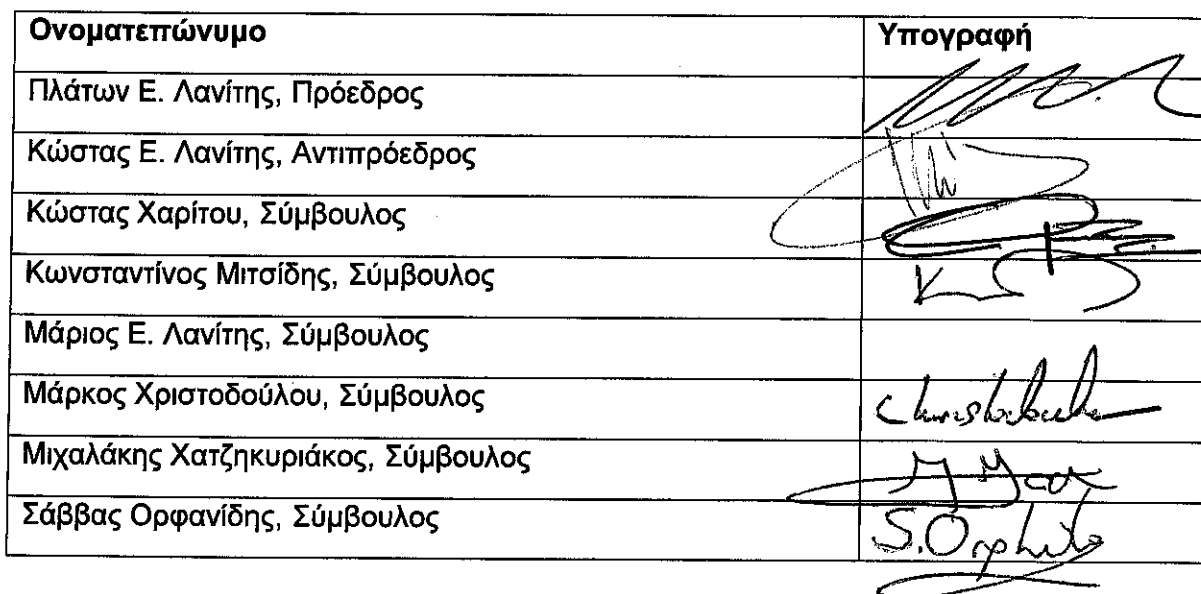 Ονοματεπώνυμο Υπογραφή
Πλάτων Ε. Λανίτης, Πρόεδρος
Κώστας Ε. Λανίτης, Αντιπρόεδρος
Κώστας Χαρίτου, Σύμβουλος
Κωνσταντίνος Μιτσίδης, Σύμβουλος
Μάριος Ε. Λανίτης, Σύμβουλος
Μάρκος Χριστοδούλου, Σύμβουλος
Μιχαλάκης Χατζηκυριάκος, Σύμβουλος
Σάββας Ορφανίδης, Σύμβουλος